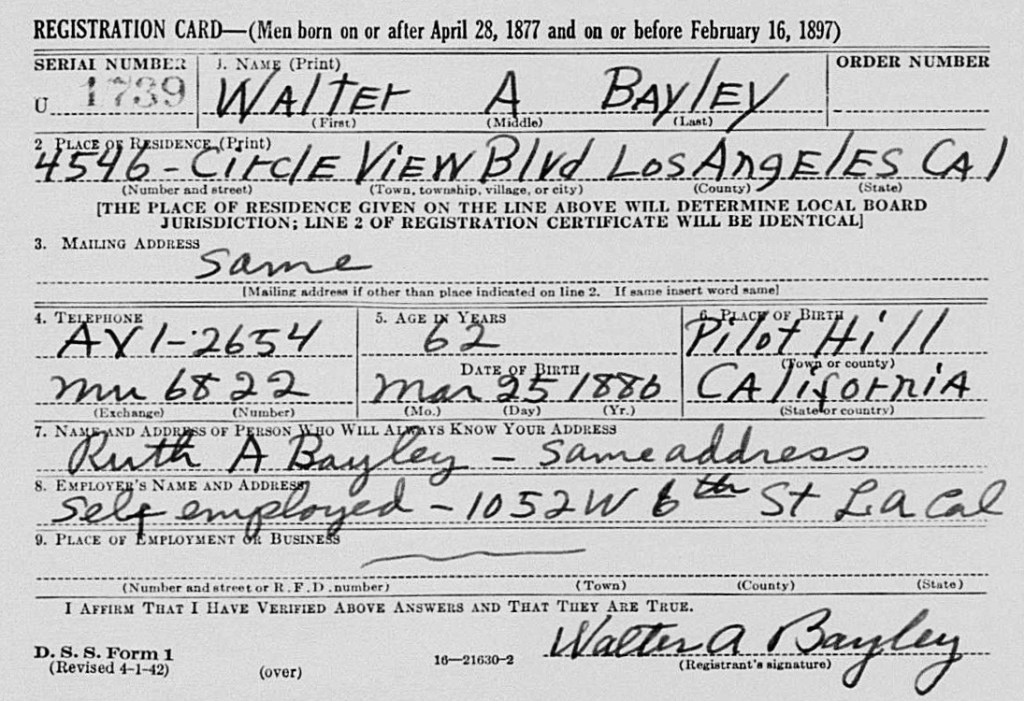 REGISTRATION CARD—(Men born on or after April 28, 1877 and on or before February 16, 1897)
SERIAL NUMBER 1. NAME (Print) ORDER NUMBER
U 1739 WALTER A BAYLEY
(First) (Middle) (Last)
2 PLACE OF RESIDENCE (Print)
4546 - CIRCLE VIEW Blvd Los ANGELES CAl
(Number and street) (Town, township, village, or city) (County) (State)
[THE PLACE OF RESIDENCE GIVEN ON THE LINE ABOVE WILL DETERMINE LOCAL BOARD
JURISDICTION; LINE 2 OF REGISTRATION CERTIFICATE WILL BE IDENTICAL]
3. MAILING ADDRESS
Same
[Mailing address if other than place indicated on line 2. If same insert word same]
4. TELEPHONE 5. AGE IN YEARS 6. PLACE OF BIRTH
AX 1-2654 62 Pilot Hill
DATE OF BIRTH (Town or county)
Mu 6822 Mar 25 1880 CAliforniA
(Exchange) (Number) (Mo.) (Day) (Yr.) (State or country)
7. NAME AND ADDRESS OF PERSON WHO WILL ALWAYS KNOW YOUR ADDRESS
Ruth A Bayley - Same address
8. EMPLOYER'S NAME AND ADDRESS
Self employed - 1052 W 6th St L a Cal
9. PLACE OF EMPLOYMENT OR BUSINESS
(Number and street or R. F. D. number) (Town) (County) (State)
I AFFIRM THAT I HAVE VERIFIED ABOVE ANSWERS AND THAT THEY ARE TRUE.
Walter A Bayley
D. S. S. Form 1
(Revised 4-1-42) (over) 16—21630-2 (Registrant's signature)